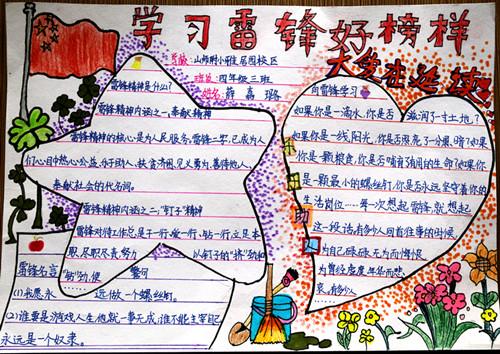 学习雷锋好榜样
大爱在延续
学校:山师附小雅居园校区
班级:四年级三班
姓名:薛嘉璐
雷锋精神是什么?
雷锋精神内涵之一,奉献精神
雷锋精神的核心是为人民服务。雷锋一平,已成为人
们心目中热心公益、乐于助人、扶贫济困、见义勇为、善待他人、
奉献社会的代名词。
雷锋精神内涵之二,"钉子"精神
雷锋对待工作总是干一行、爱一行、钻一行,立足本
职、尽职尽责,努力
以钉子的"挤"劲和
"钻"劲,使
雷锋名言
(1)我愿永
远做一个螺丝钉。
(2)谁要是游戏人生,他就一事无成,谁不能主宰自己
永远是一个奴隶。
向雷锋学习
如果你是一滴水,你是否滋润了寸土地?
如果你是一线阳光,你是否照亮了一分黑暗?如果
你是一颗粮食,你是否哺育了有用的生命?如果你
是一颗最小的螺丝钉,你是否永远坚守着你的
生活岗位……每一次想起雷锋,就想起
这一段话,有多少人回首往事的时候
为自己碌碌无为而悔恨
为曾经虚度年华而悲
哀,有多少
助